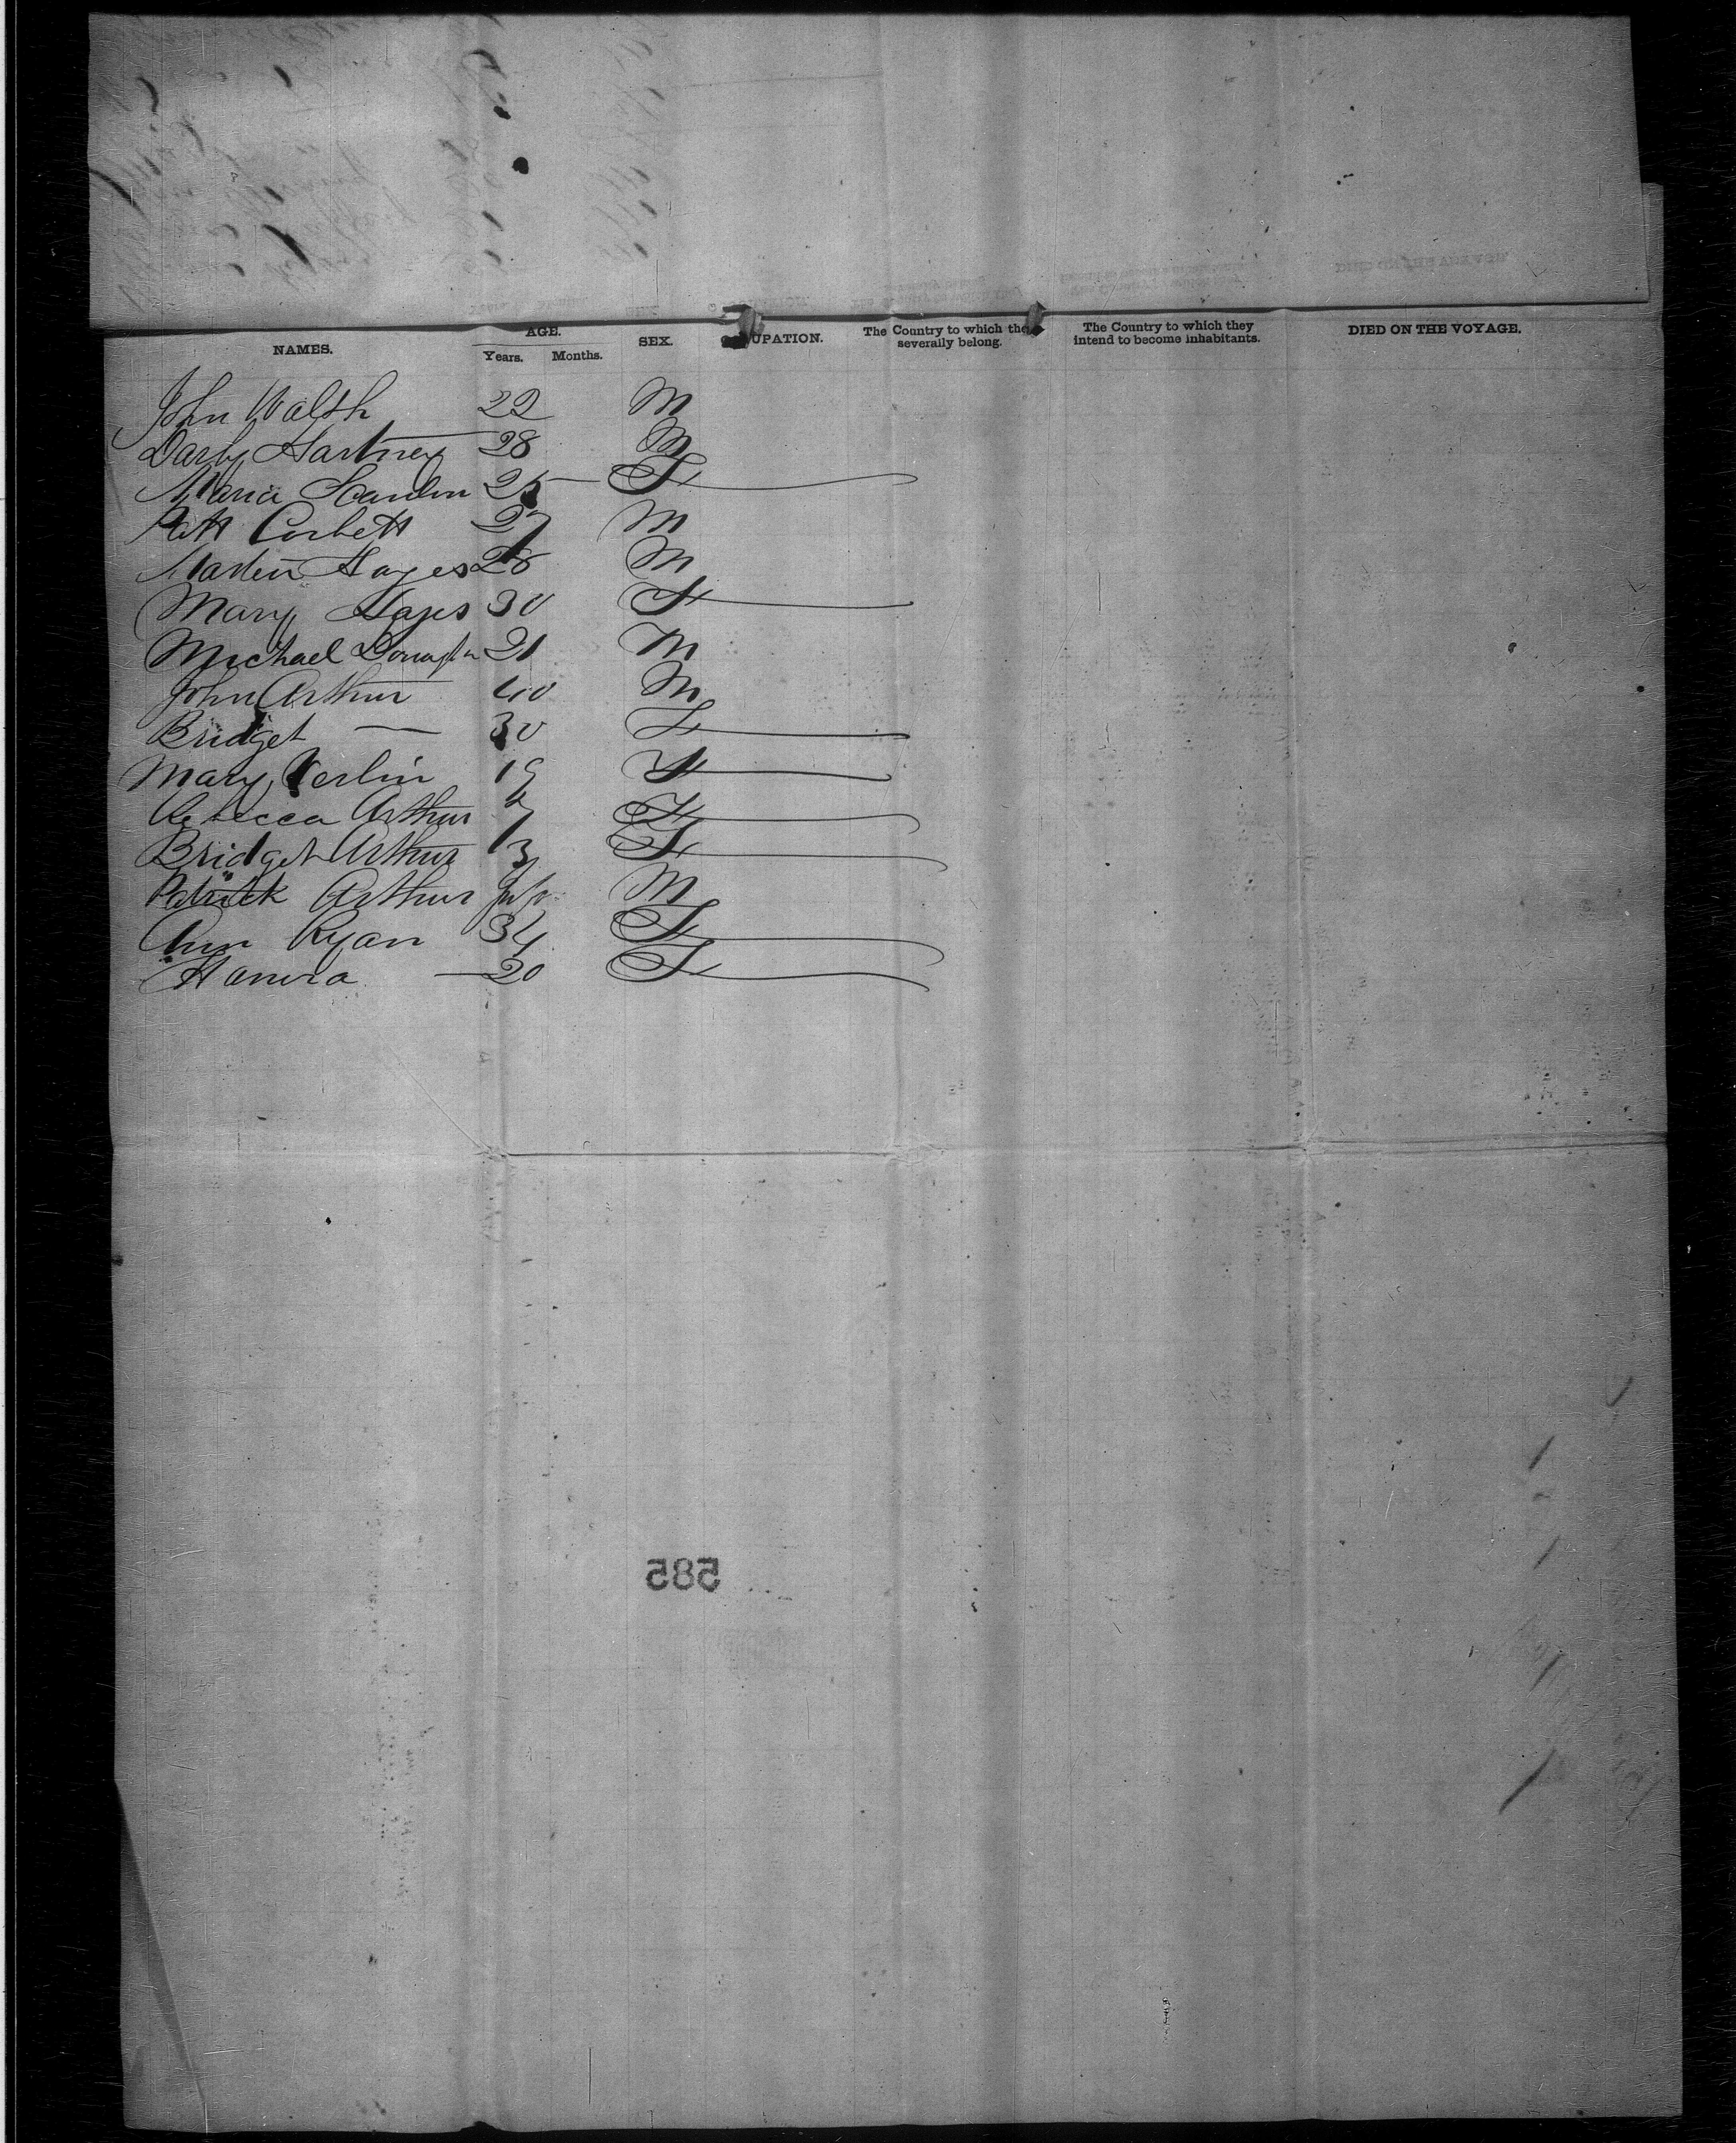 NAMES. AGE. SEX. UPATION. The Country to which the severally belong. The Country to which they intend to become inhabitants. DIED ON THE VOYAGE.
Years. Months.
John Walsh 22 M
Darby Hartney 28 M
Maria Scanlon 25 F
Patt Corbett 27 M
Marten Hayes 28 M
Mary Hayes 30 F
Michael 21 M
John Arthur 40 M
Bridget — 30 F
Mary 19 F
Rebecca Arthur F
Bridget Arthur 3 F
Patrick Arthur Inft M
Ann Ryan 34 F
Hanora — 20 F
585